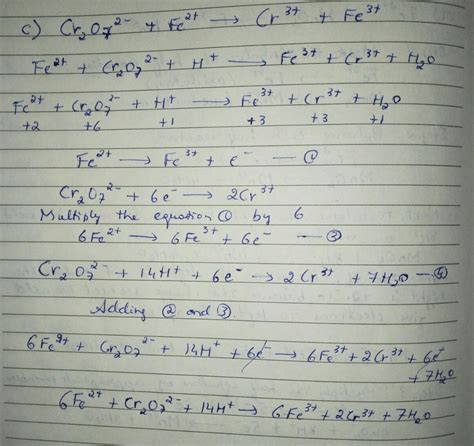 c) Cr₂O₇²⁻ + Fe²⁺ → Cr³⁺ + Fe³⁺
Fe²⁺ + Cr₂O₇²⁻ + H⁺ → Fe³⁺ + Cr³⁺ + H₂O
Fe²⁺ + Cr₂O₇²⁻ + H⁺ → Fe³⁺ + Cr³⁺ + H₂O
+2 +6 +1 +3 +3 +1
Fe²⁺ → Fe³⁺ + e⁻ — ①
Cr₂O₇²⁻ + 6e⁻ → 2Cr³⁺
Multiply the equation ① by 6
6Fe²⁺ → 6Fe³⁺ + 6e⁻ — ③
Cr₂O₇²⁻ + 14H⁺ + 6e⁻ → 2Cr³⁺ + 7H₂O — ④
Adding ② and ③
6Fe²⁺ + Cr₂O₇²⁻ + 14H⁺ + 6e⁻ → 6Fe³⁺ + 2Cr³⁺ + 6e⁻
+ 7H₂O
6Fe²⁺ + Cr₂O₇²⁻ + 14H⁺ → 6Fe³⁺ + 2Cr³⁺ + 7H₂O